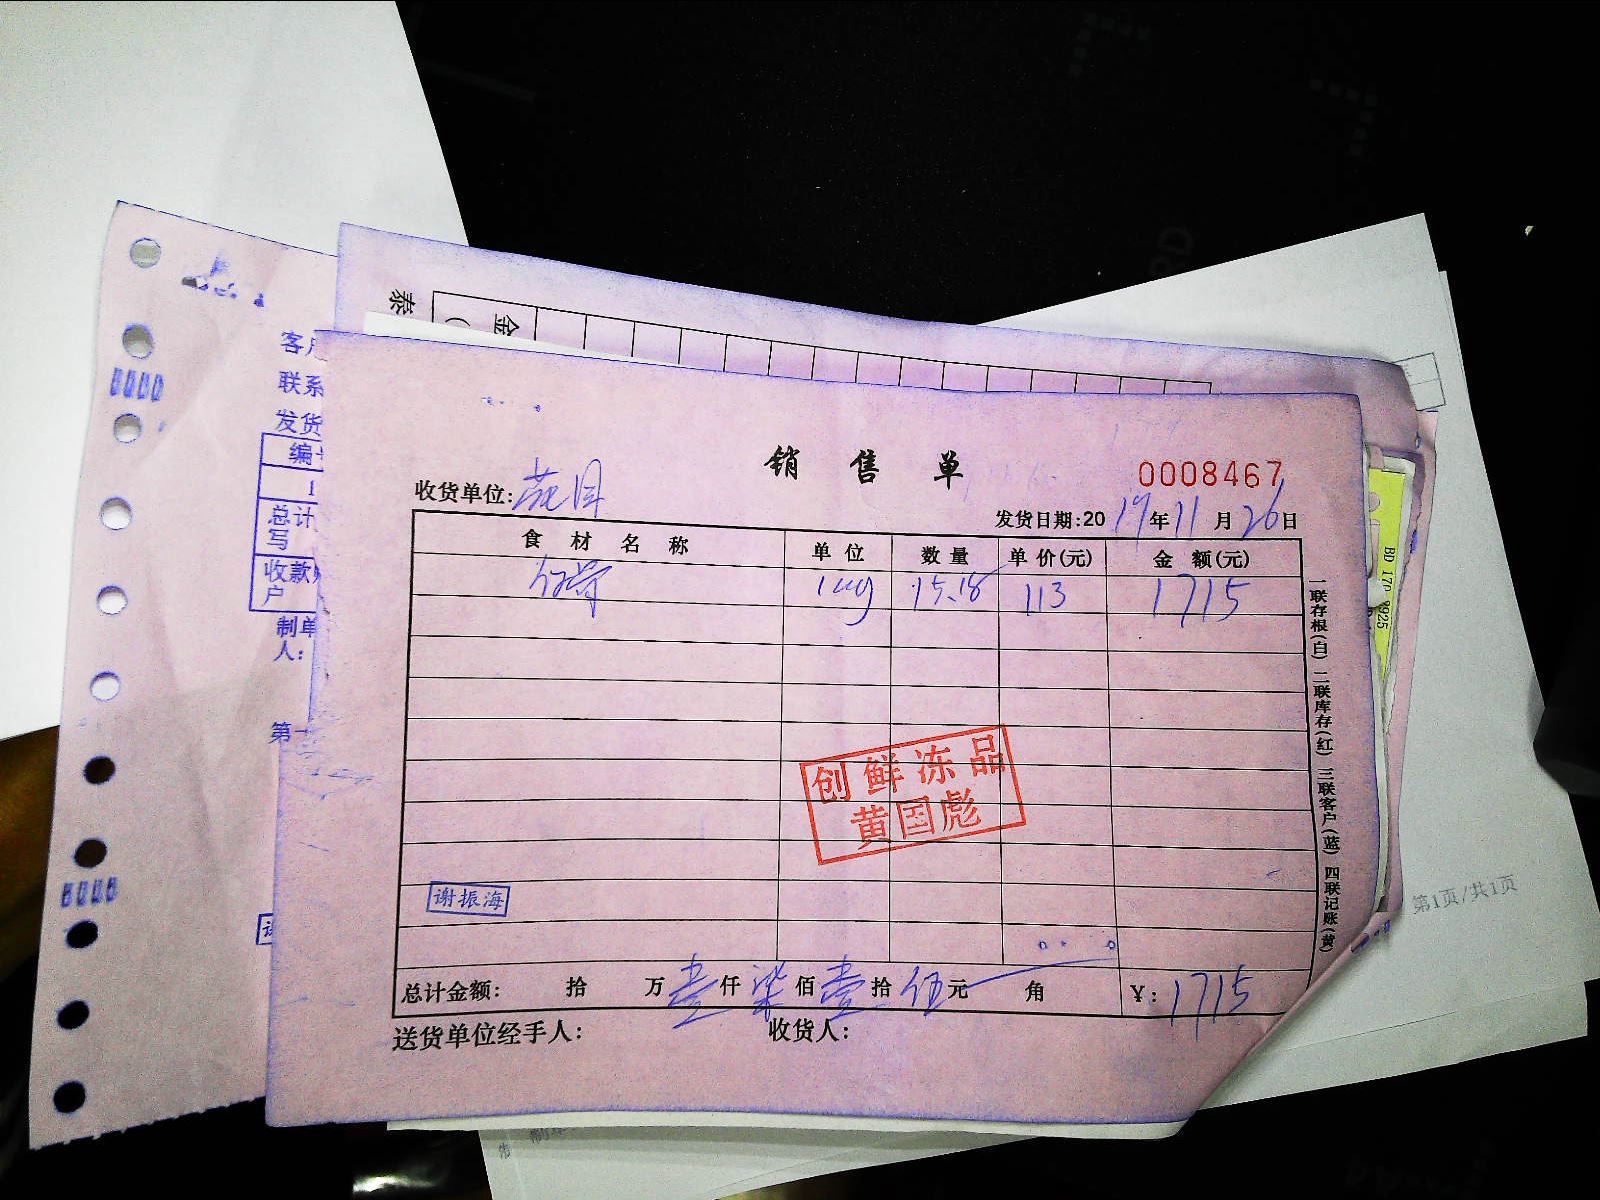 泰
金
客户
联系
发货
编
1
总计
写
收款
户
制单
人:
第一
销售单
0008467
收货单位:苑园
发货日期:2019年11月26日
食材名称 单位 数量 单价(元) 金额(元)
15.18 113 1715
创鲜冻品
黄国彪
谢振海
总计金额: 拾 万壹仟柒佰壹拾伍元 角 ¥:1715
送货单位经手人: 收货人:
一联存根(白) 二联库存(红) 三联客户(蓝) 四联记账(黄)
第1页/共1页